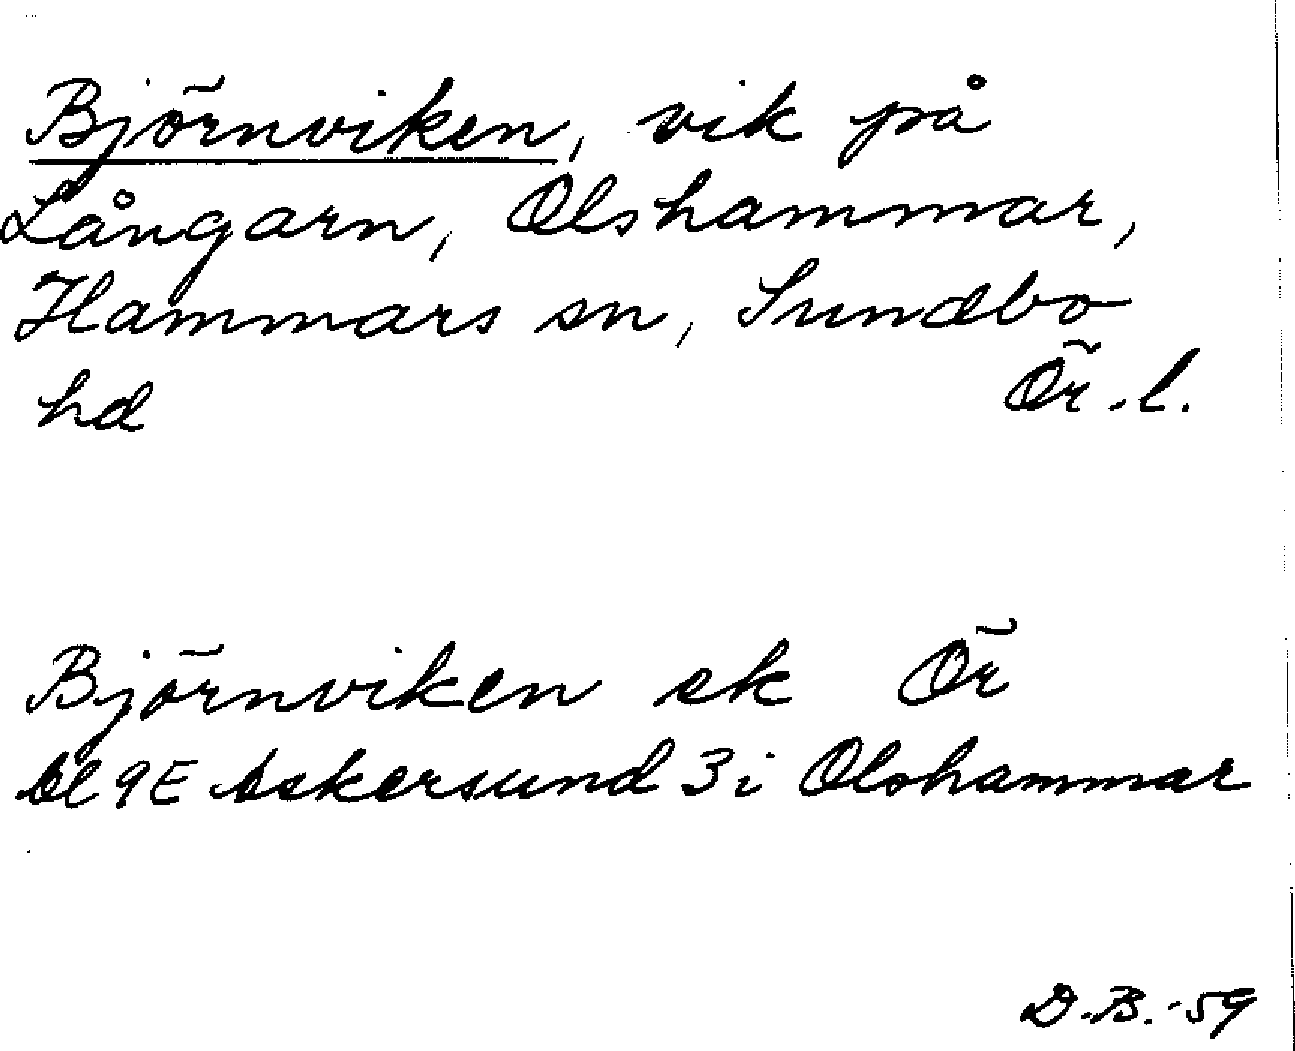 Björnviken, vik på
Långarn, Olshammar,
Hammars sn, Sundbo
hd Ör.l.
Björnviken ek Ör
bl 9E Askersund 3i Olshammar
D.B.-59